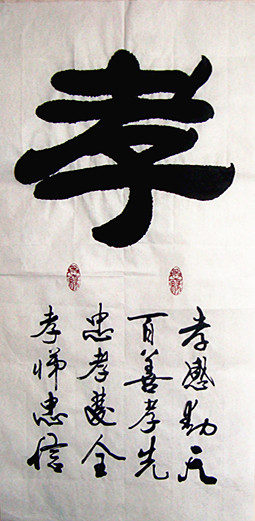 孝
孝感動天
百善孝先
忠孝雙全
孝悌忠信